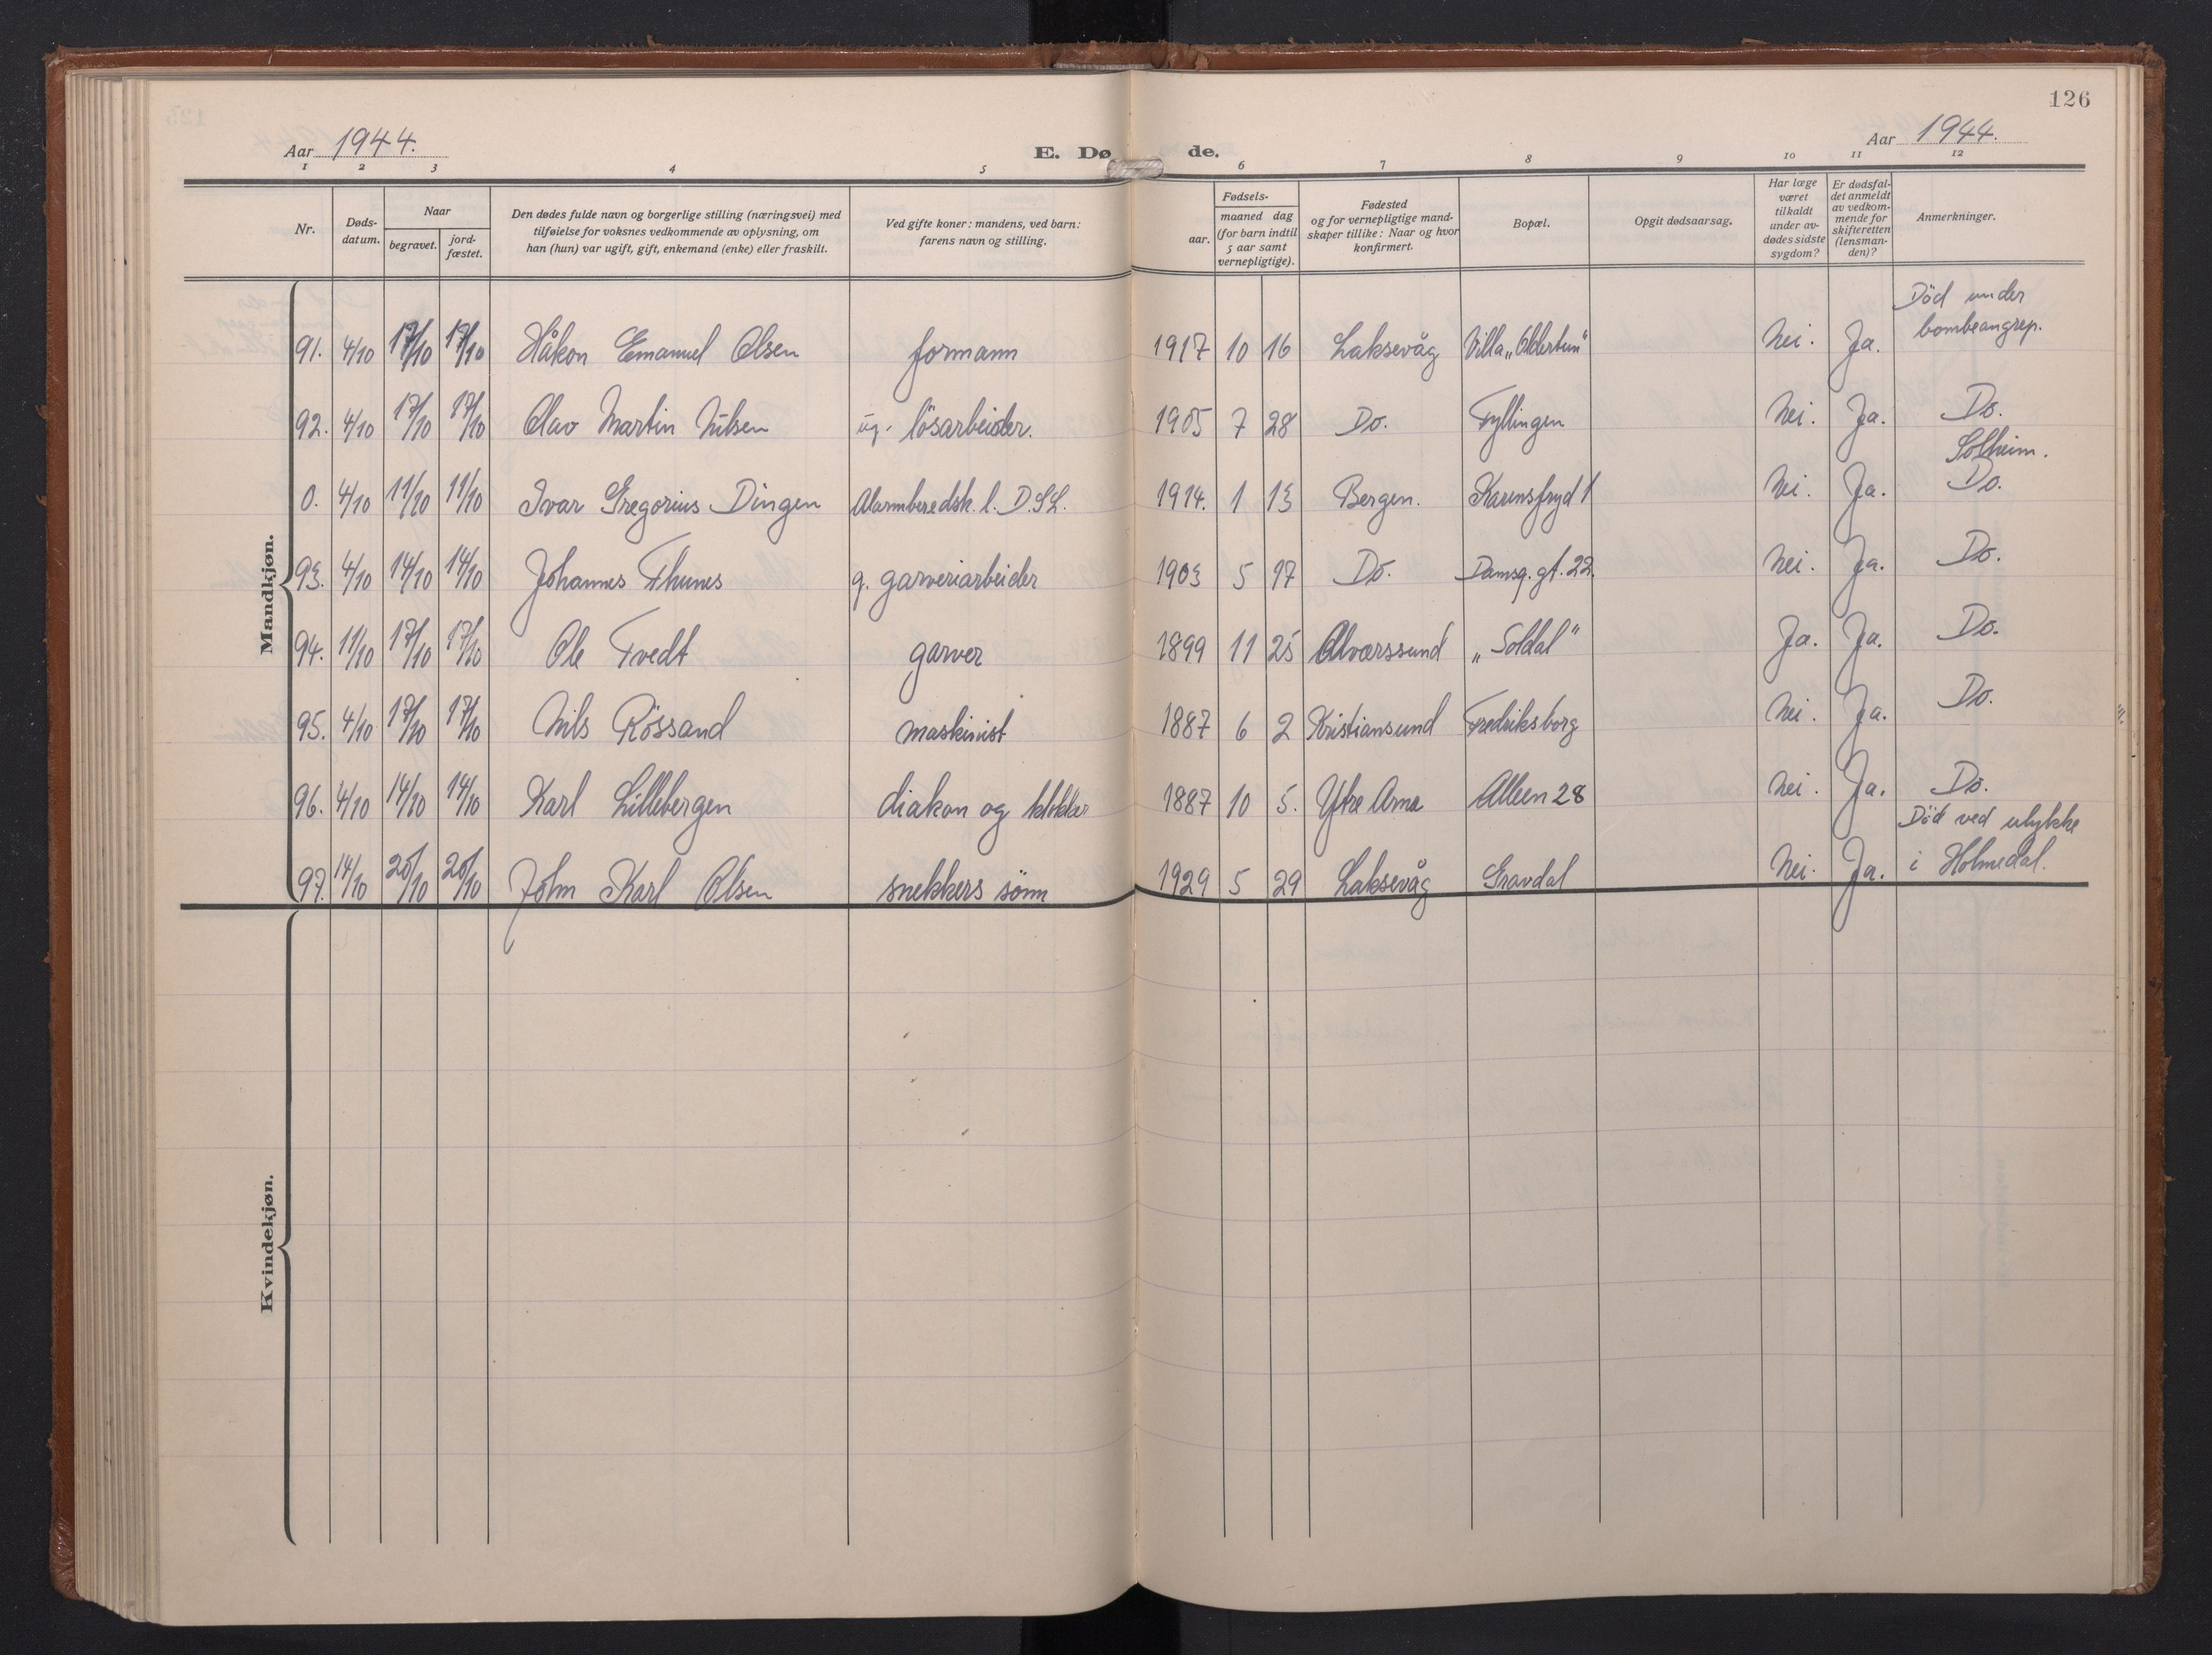 126
Aar 1944. E. Dø de. Aar 1944.
1 2 3 4 5 6 7 8 9 10 11 12
Nr.
Døds-
datum.
Naar
begravet.
jord-
fæstet.
Den dødes fulde navn og borgerlige stilling (næringsvei) med
tilføielse for voksnes vedkommende av oplysning, om
han (hun) var ugift, gift, enkemand (enke) eller fraskilt.
Ved gifte koner: mandens, ved barn:
farens navn og stilling.
Fødsels-
aar.
maaned dag
(for barn indtil
5 aar samt
vernepligtige).
Fødested
og for vernepligtige mand-
skaper tillike: Naar og hvor
konfirmert.
Bopæl.
Opgit dødsaarsag.
Har læge
været
tilkaldt
under av-
dødes sidste
sygdom?
Er dødsfal-
det anmeldt
av vedkom-
mende for
skifteretten
(lensman-
den)?
Anmerkninger.
Mandkjøn.
Død under
bombeangrep.
91. 4/10 17/10 17/10 Håkon Emanuel Olsen formann 1917 10 16 Laksevåg Villa „Oldertun" Nei. Ja.
92. 4/10 17/10 17/10 Olav Martin Nilsen ug. lösarbeider. 1905 7 28 Do. Fyllingen Nei. Ja. Do.
Solheim.
0. 4/10 11/10 11/10 Ivar Gregorius Dingen Alarmberedsk. l. D.S.L. 1914. 1 13 Bergen. Karensfryd 1 Nei. Ja. Do.
93. 4/10 14/10 14/10 Johannes Thunes g. garveriarbeider 1903 5 17 Do. Damsg. gt. 22. Nei. Ja. Do.
94. 11/10 17/10 17/10 Ole Tvedt garver 1899 11 25 Alværssund „Soldal" Ja. Ja. Do.
95. 4/10 17/10 17/10 Nils Rössand maskinist 1887 6 2 Kristiansund Fredriksborg Nei. Ja. Do.
96. 4/10 14/10 14/10 Karl Lillebergen diakon og klokker 1887 10 5. Ytre Arna Alleen 28 Nei. Ja. Do.
Död ved ulykke
97. 14/10 20/10 20/10 John Karl Olsen snekkers sönn 1929 5 29 Laksevåg Gravdal Nei. Ja. i Holmedal.
Kvindekjøn.